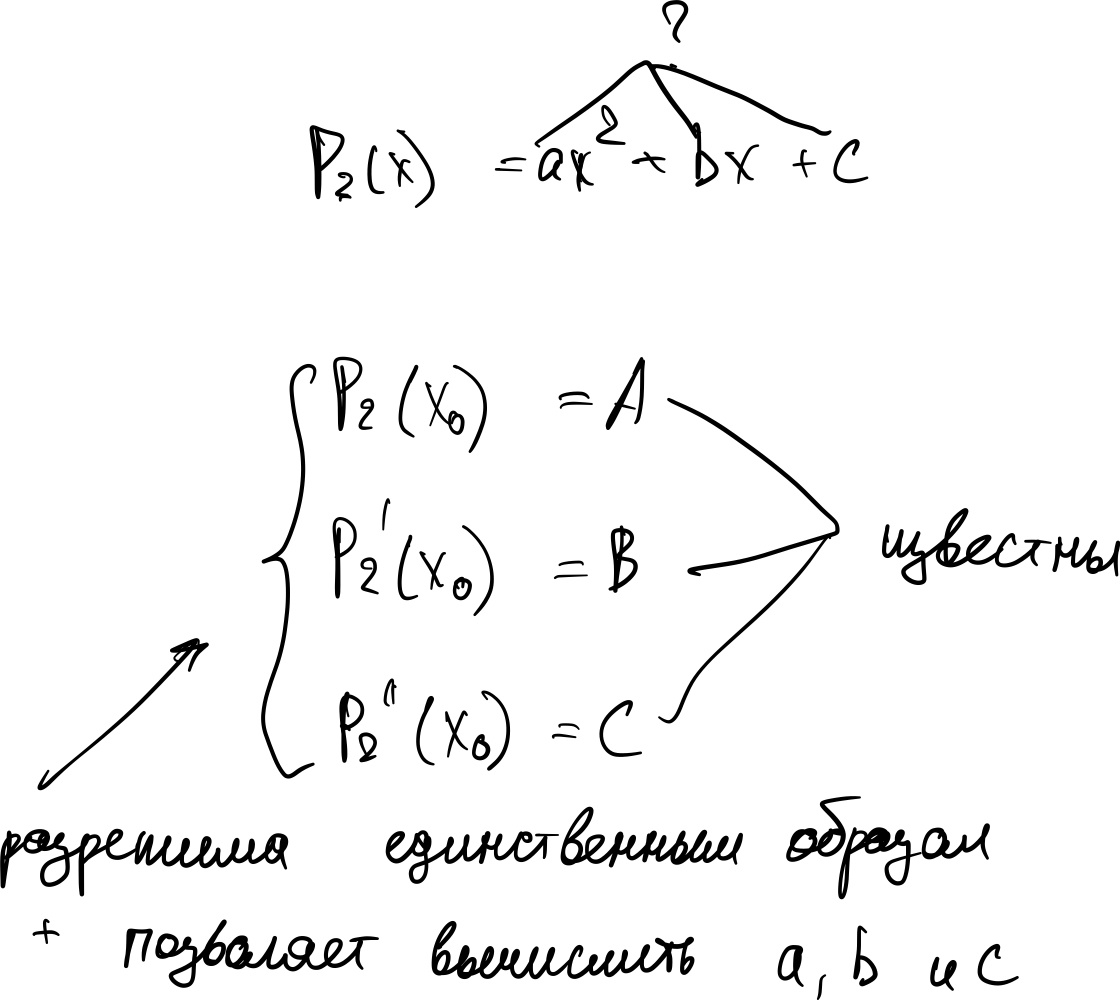 ?
P₂(x) = ax² + bx + c
P₂(x₀) = A
P₂'(x₀) = B
известны
P₂''(x₀) = C
разрешима единственным образом
+ позволяет вычислить a, b и c